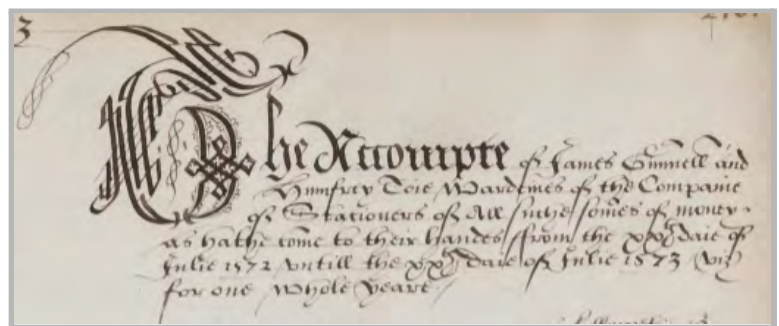 3
The Accompte of James Gonnell and
Humfrey Toie Wardeines of the Companie
of Stationers of All suche somes of money
as hathe come to their handes ffrom the xxth daie of
Julie 1572 vntill the xxth daie of Julie 1573 viz
for one whole yeare